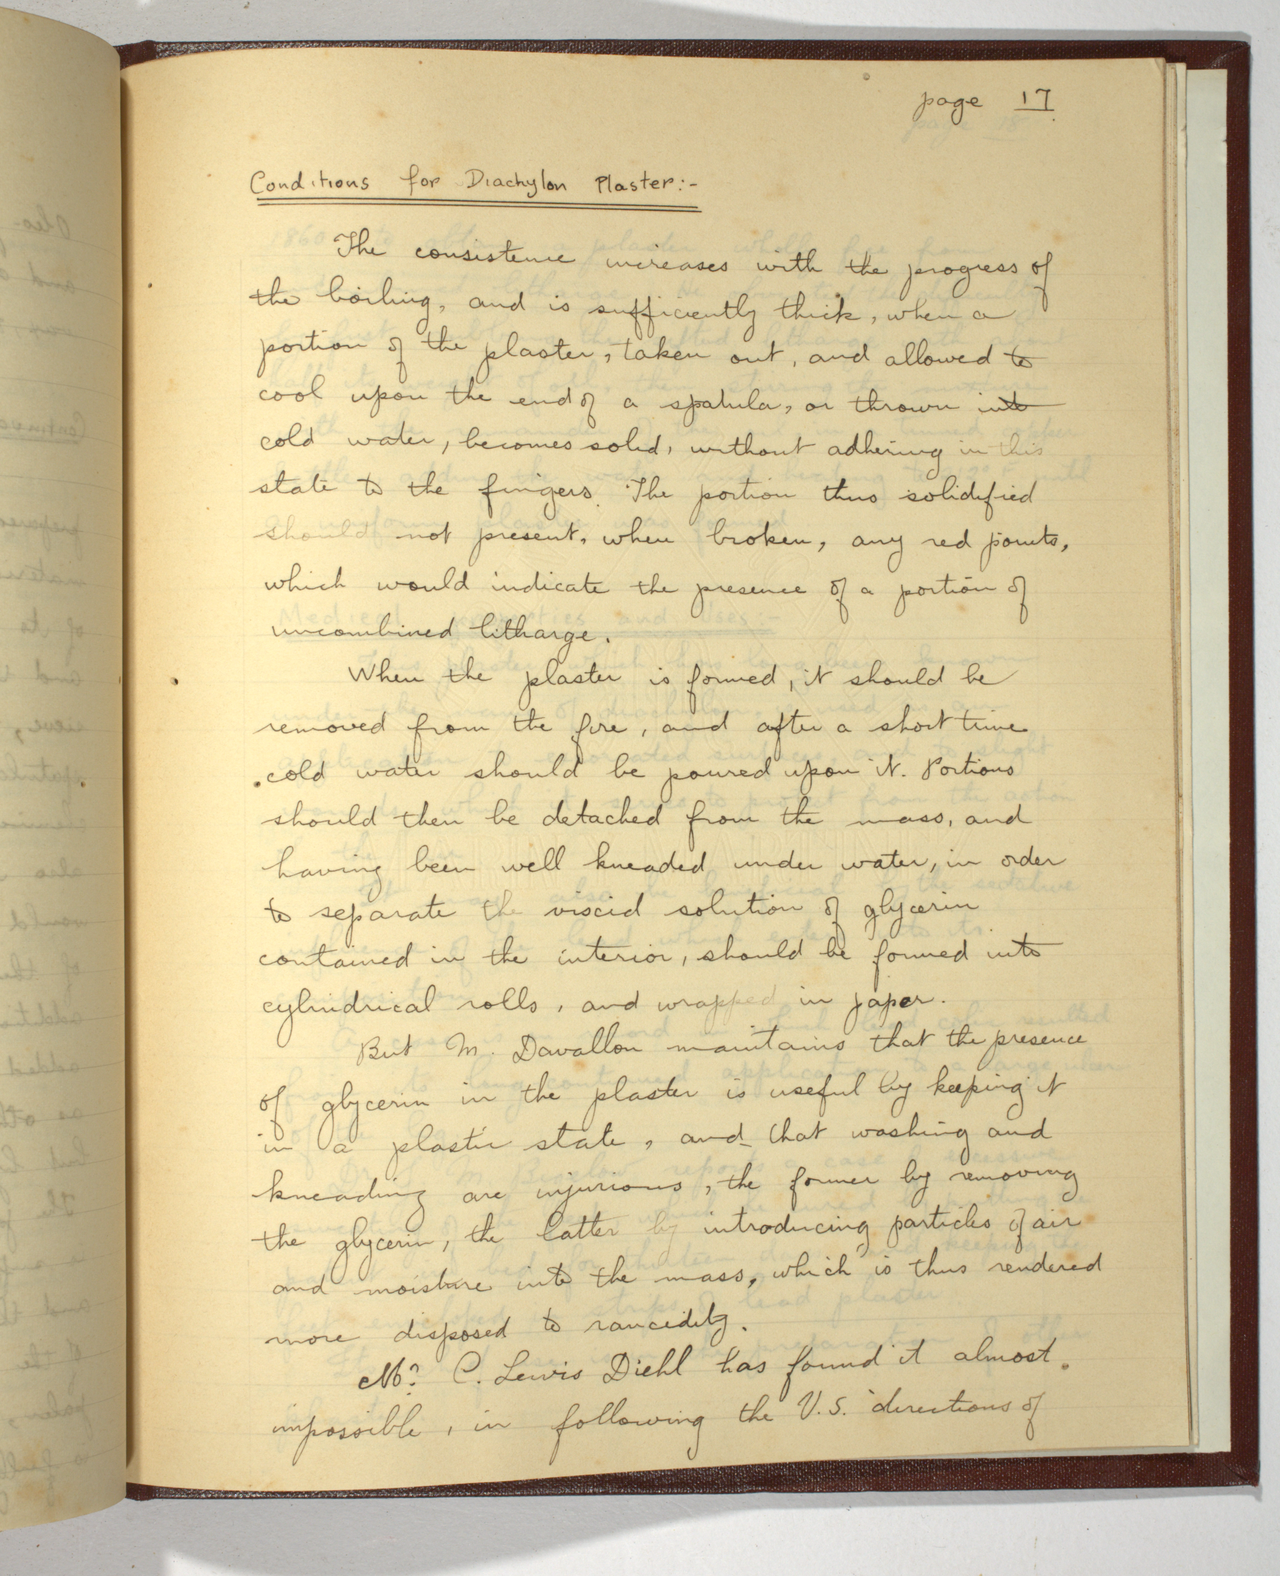 page 17
Conditions for Diachylon Plaster:-
The consistence increases with the progress of
the boiling, and is sufficiently thick, when a
portion of the plaster, taken out, and allowed to
cool upon the end of a spatula, or thrown into
cold water, becomes solid, without adhering in this
state to the fingers. The portion thus solidified
should not present, when broken, any red points,
which would indicate the presence of a portion of
uncombined litharge.
When the plaster is formed, it should be
removed from the fire, and after a short time
cold water should be poured upon it. Portions
should then be detached from the mass, and
having been well kneaded under water, in order
to separate the viscid solution of glycerin
contained in the interior, should be formed into
cylindrical rolls, and wrapped in paper.
But M. Davallon maintains that the presence
of glycerin in the plaster is useful by keeping it
in a plastic state, and that washing and
kneading are injurious, the former by removing
the glycerin, the latter by introducing particles of air
and moisture into the mass, which is thus rendered
more disposed to rancidity.
Mr. C. Lewis Diehl has found it almost
impossible, in following the U.S. directions of